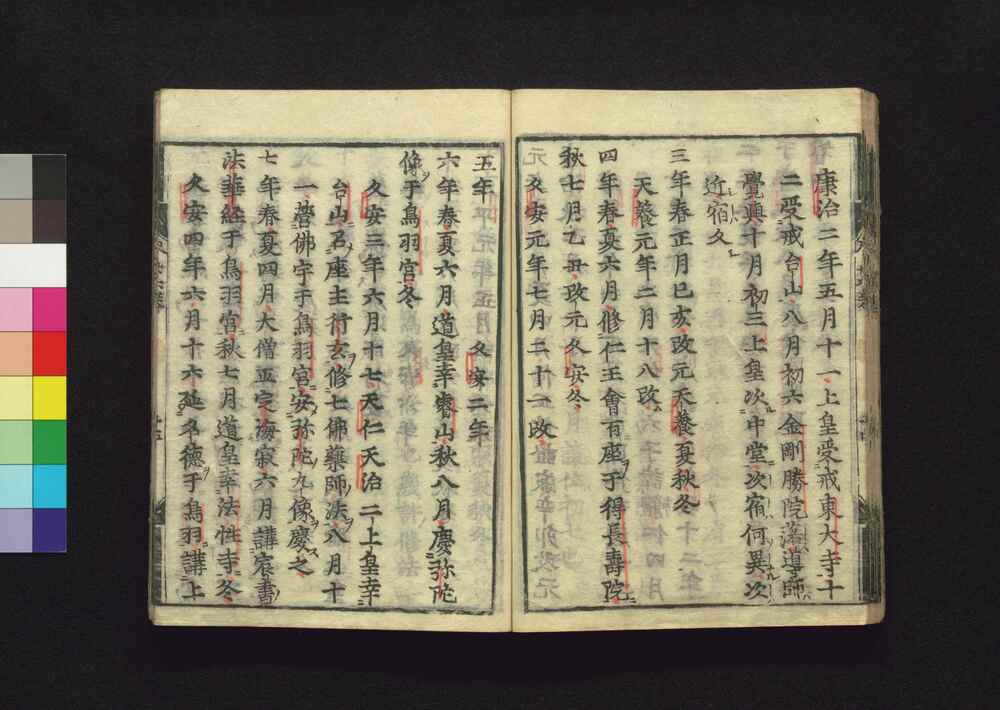 康治二年五月十一上皇受戒東大寺十
二受戒台山八月初六金剛勝院落導師
覺與十月初三上皇次中堂次宿何異次
近宿久
三年春正月巳亥改元天養夏秋冬
天養元年二月十八改
四年春夏六月修仁王會百座于得長壽院
秋七月乙丑改元久安冬
久安元年七月二十一改
五年久安二年
六年春夏六月道皇幸睿山秋八月慶弥陀
像于鳥羽宮冬
久安三年六月十七天仁天治二上皇幸
台山名座主行玄修七佛藥師法八月十
一營佛宇于鳥羽宮安弥陀九像慶之
七年春夏四月大僧正定海寂六月講宸書
法華經于鳥羽宮秋七月道皇幸法性寺冬
久安四年六月十六延名德于鳥羽講上